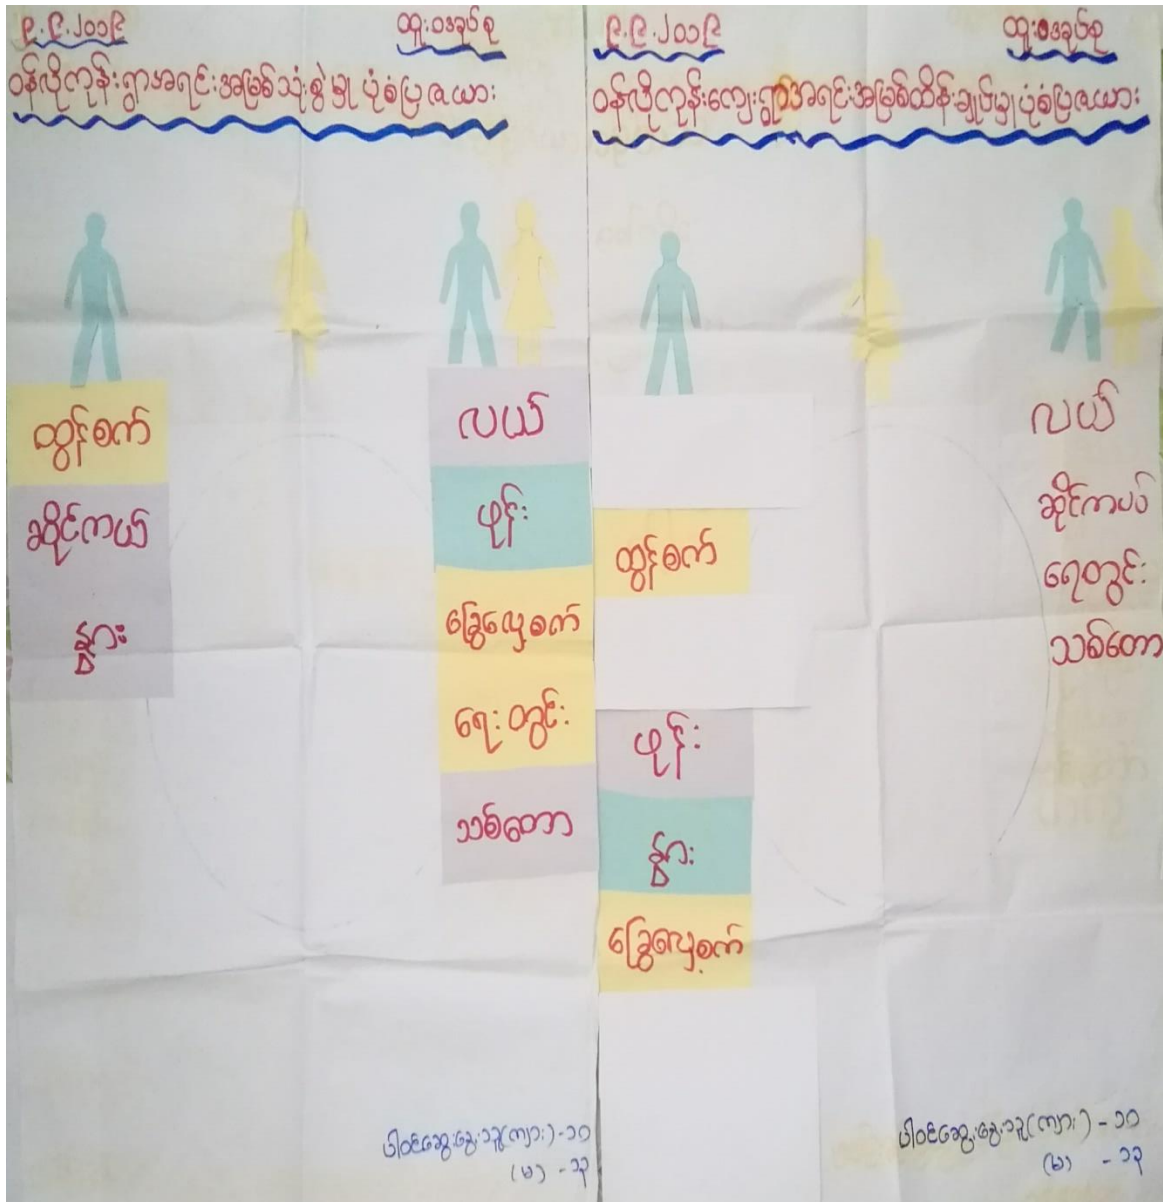 ၉.၉.၂၀၁၉
ထူးဒေခုပ်စု
ဝန်လိုကုန်းရွာအရင်းအမြစ်သုံးစွဲမှု ပုံစံပြဇယား
ထွန်စက်
ဆိုင်ကယ်
နွား
လယ်
ဖုန်း
ခြွေလှေ့စက်
ရေးတွင်း
သစ်တော
ပါဝင်ဆွေးနွေးသူ(ကျား)-၁၀
(မ) - ၁၃
၉.၉.၂၀၁၉
ဝန်လိုကုန်းကျေးရွာအရင်းအမြစ်ထိန်းချုပ်မှုပုံစံပြဇယား
ထွန်စက်
ဖုန်း
နွား
ခြွေလှေ့စက်
လယ်
ဆိုင်ကယ်
ရေတွင်း
သစ်တော
ပါဝင်ဆွေးနွေးသူ(ကျား) - ၁၀
(မ) - ၁၃